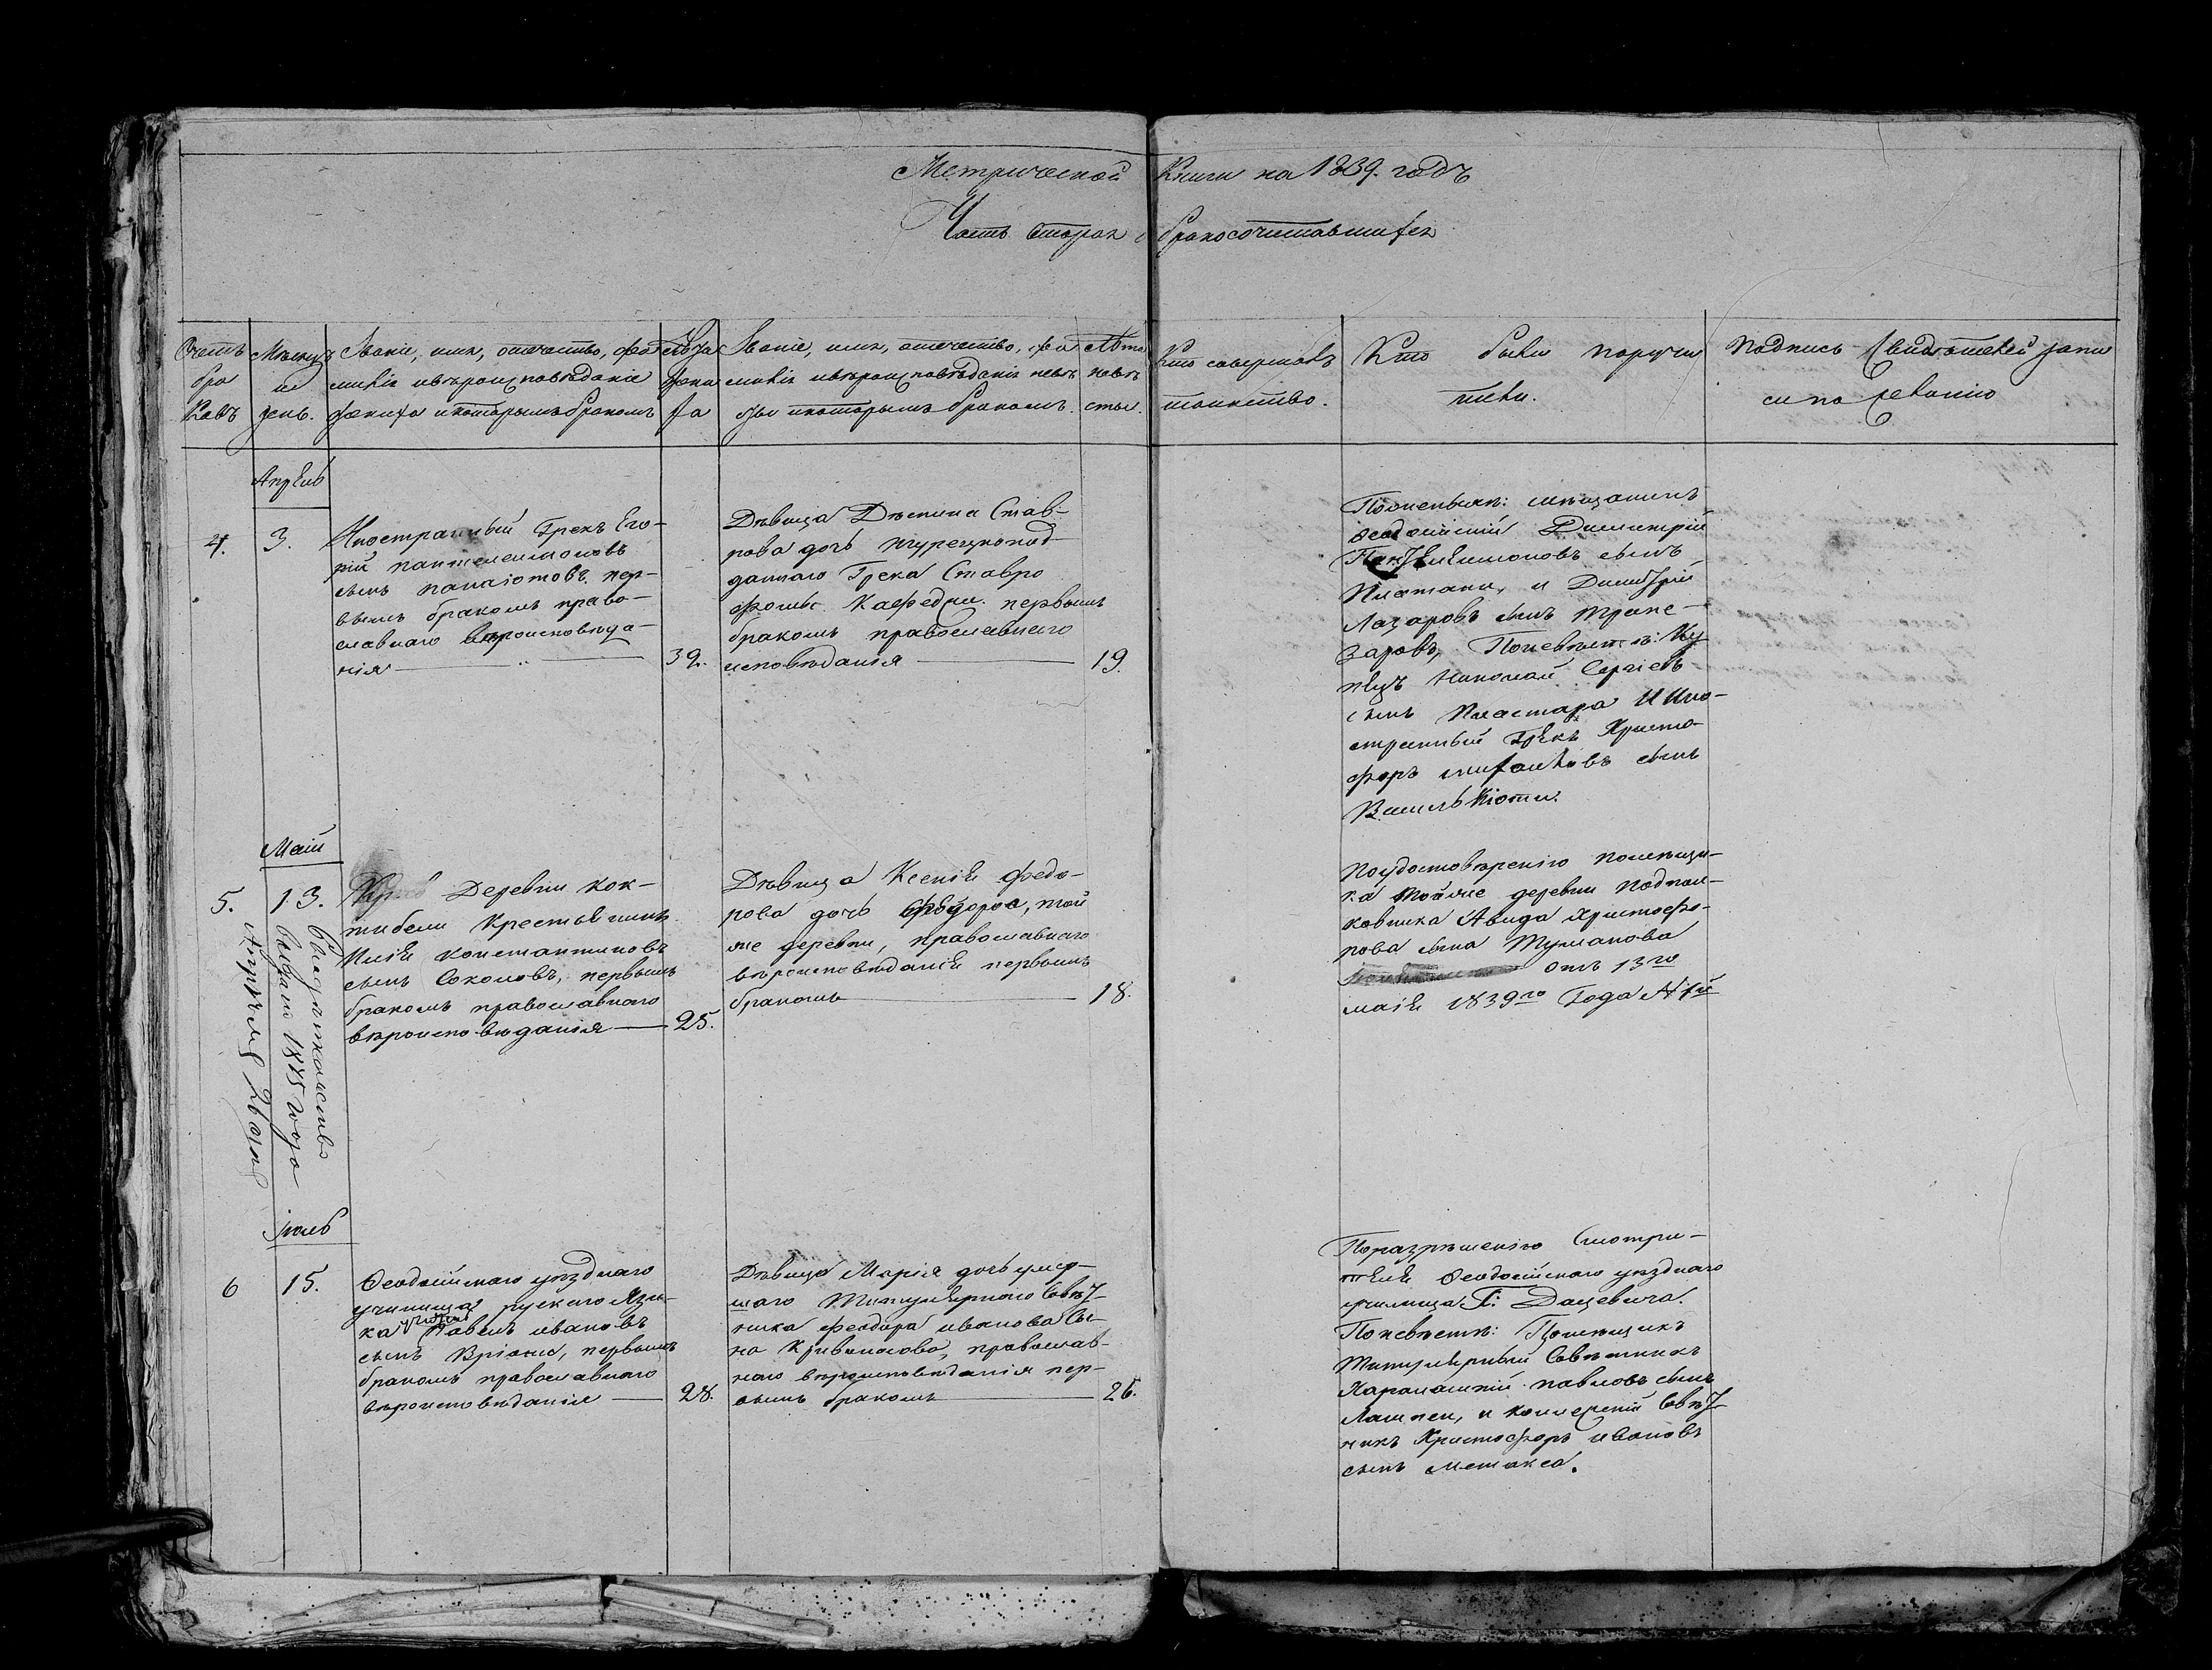 Метрической Книги на 1839. годъ
Часть вторая о бракосочетавшихся
Счетъ бра ковъ
Мѣсяцъ и день.
Званіе, имя, отечество, фа милія и вѣроисповѣданіе жениха и которымъ бракомъ
Лѣта жени ха
Званіе, имя, отечество, фа милія и вѣроисповѣданія невѣ сты и которымъ бракомъ.
Лѣта невѣ сты.
Кто совершалъ таинство.
Кто были поручи тели.
Подпись свидѣтелей запи си по желанію
Апрѣль
4.
3.
Иностранный Грекъ Его-
рій Пантелеимоновъ
сынъ Панаіотовъ. пер-
вымъ бракомъ право-
славнаго вѣроисповѣда-
нія
39.
Дѣвица Деспина Став-
рова дочь турецкопод-
даннаго Грека Ставро
первымъ
бракомъ православнаго
исповѣданія
19.
По женихѣ: мѣщанинъ
Ѳеодосійскій Димитрій
Пантелеимоновъ сынъ
и Димитрій
Лазаровъ сынъ
По невѣстѣ: Ку
пецъ Николай Сергіевъ
сынъ и Ино-
странный Грекъ Христо-
форъ Михайловъ сынъ
Май
5.
13.
Деревни Кок-
тибели Крестьянинъ
Илія Константиновъ
сынъ Соколовъ, первымъ
бракомъ православнаго
вѣроисповѣданія
25.
Дѣвица Ксенія Федо-
рова дочь той
же деревни, православнаго
вѣроисповѣданія первымъ
бракомъ
18.
По удостовѣренію помѣщи-
ка той же деревни подпол-
ковника Авида Христофо-
рова сына Туманова
отъ 13го
маія 1839го Года №
Свидѣтельство
выдано 1885 года
Апрѣля
Іюль
6
15.
Ѳеодосійскаго уѣзднаго
училища рускаго Язы-
ка учитель Павелъ Ивановъ
сынъ первымъ
бракомъ православнаго
вѣроисповѣданія
28.
Дѣвица Марія дочь умер-
шаго Титулярнаго Совѣт-
ника Феодора Иванова Сы-
на православ-
наго вѣроисповѣданія пер-
вымъ бракомъ
26.
По разрѣшенію Смотри-
теля Ѳеодосійскаго уѣзднаго
училища Г: Дацевича.
По невѣстѣ: Помѣщикъ
Титулярный Совѣтникъ
Харалампій Павловъ сынъ
и коллерскій Совѣт-
никъ Христофоръ Ивановъ
сынъ Метакса.